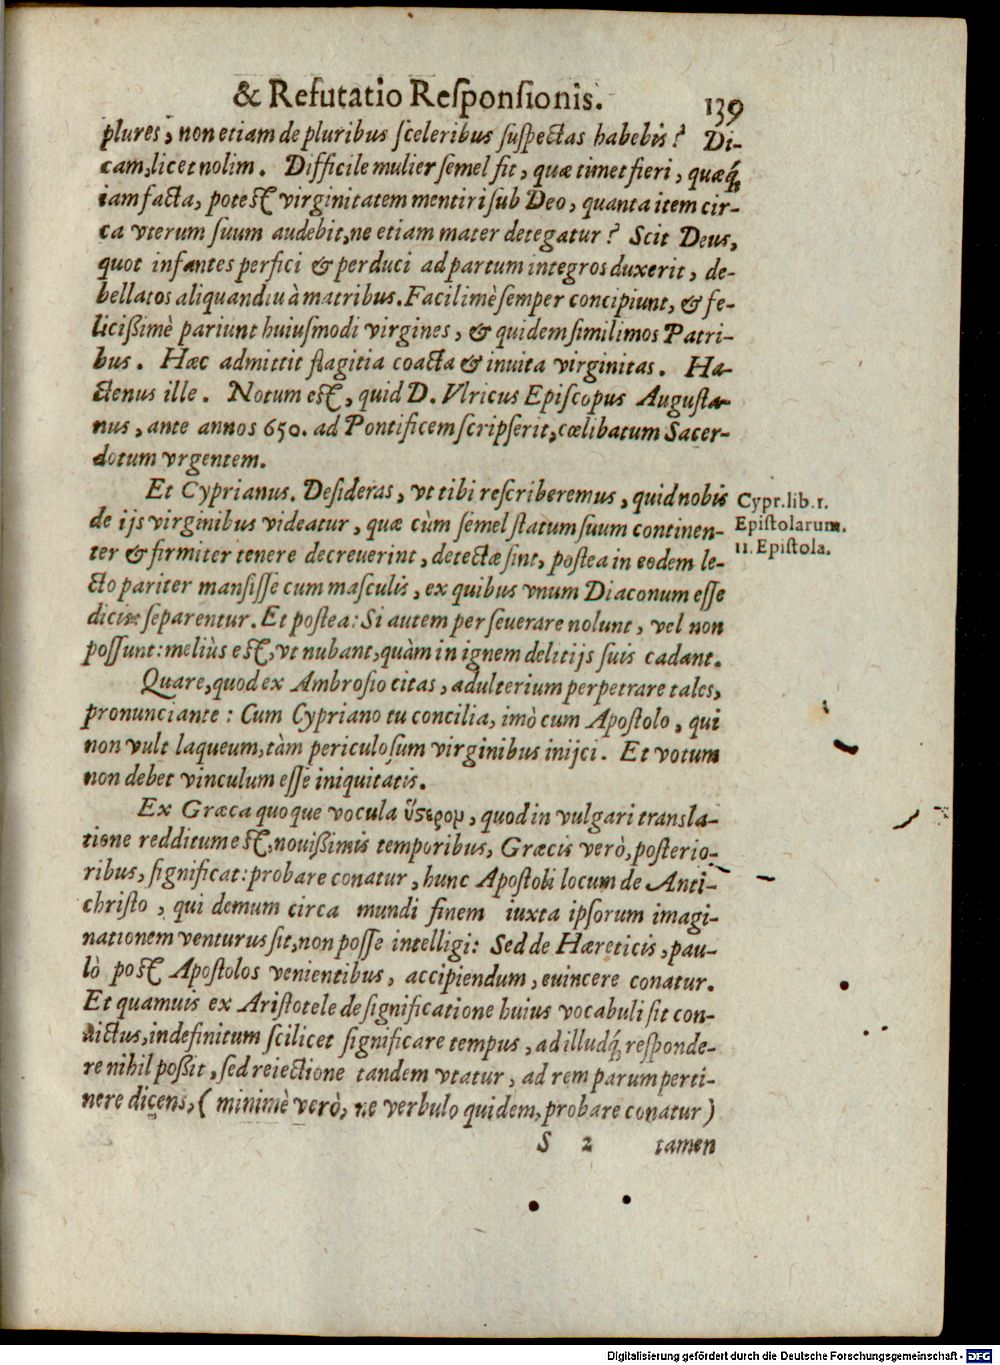 & Refutatio Responsionis. 139
plures, non etiam de pluribus sceleribus suspectas habebis? Di-
cam, licet nolim. Difficile mulier semel fit, quæ timet fieri, quæq́;
iam facta, potest virginitatem mentiri sub Deo, quanta item cir-
ca vterum suum audebit, ne etiam mater detegatur? Scit Deus,
quot infantes perfici & perduci ad partum integros duxerit, de-
bellatos aliquandiu à matribus. Facilimè semper concipiunt, & fe-
licißimè pariunt huiusmodi virgines, & quidem similimos Patri-
bus. Hæc admittit flagitia coacta & inuita virginitas. Ha-
ctenus ille. Notum est, quid D. Vlricus Episcopus Augusta-
nus, ante annos 650. ad Pontificem scripserit, cœlibatum Sacer-
dotum vrgentem.
Et Cyprianus. Desideras, vt tibi rescriberemus, quid nobis
de ijs virginibus videatur, quæ cùm semel statum suum continen-
ter & firmiter tenere decreuerint, detectæ sint, postea in eodem le-
cto pariter mansisse cum masculis, ex quibus vnum Diaconum esse
dicis: separentur. Et postea: Si autem perseuerare nolunt, vel non
possunt: meliùs est, vt nubant, quàm in ignem delitijs suis cadant.
Cypr. lib. 1.
Epistolarum.
11. Epistola.
Quare, quod ex Ambrosio citas, adulterium perpetrare tales,
pronunciante: Cum Cypriano tu concilia, imò cum Apostolo, qui
non vult laqueum, tàm periculosum virginibus inijci. Et votum
non debet vinculum esse iniquitatis.
Ex Græca quoque vocula ὕστερον, quod in vulgari transla-
tione redditum est, nouißimis temporibus, Græcis verò, posterio-
ribus, significat: probare conatur, hunc Apostoli locum de Anti-
christo, qui demum circa mundi finem iuxta ipsorum imagi-
nationem venturus sit, non posse intelligi: Sed de Hæreticis, pau-
lò post Apostolos venientibus, accipiendum, euincere conatur.
Et quamuis ex Aristotele de significatione huius vocabuli sit con-
uictus, indefinitum scilicet significare tempus, ad illudq́; responde-
re nihil poßit, sed reiectione tandem vtatur, ad rem parum perti-
nere dicens, (minimè verò, ne verbulo quidem, probare conatur)
S 2 tamen
Digitalisierung gefördert durch die Deutsche Forschungsgemeinschaft - DFG